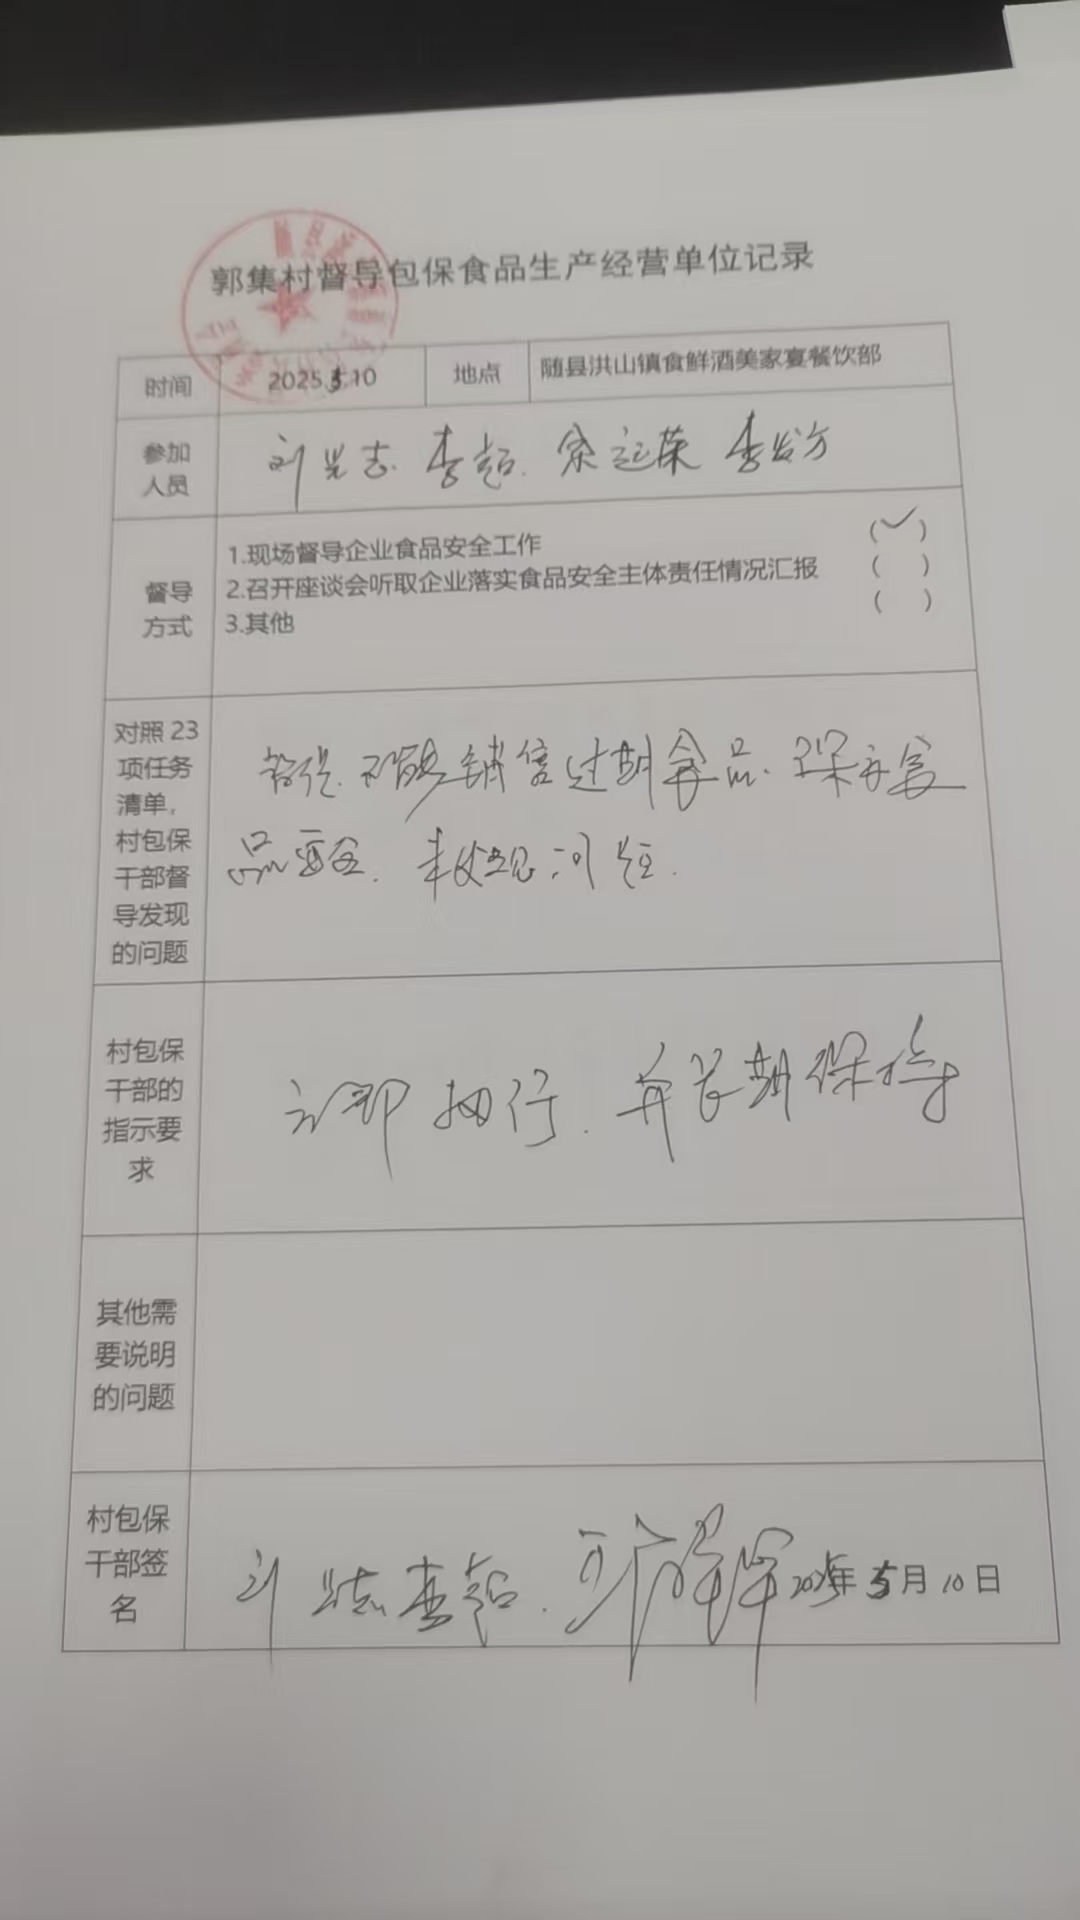 郭集村督导包保食品生产经营单位记录
时间 2025.5.10 地点 随县洪山镇食鲜酒美家宴餐饮部
参加人员 刘光志 李超 李发方
督导方式
1.现场督导企业食品安全工作 (✓)
2.召开座谈会听取企业落实食品安全主体责任情况汇报 ( )
3.其他 ( )
对照 23
项任务
清单,
村包保
干部督
导发现
的问题
不能销售过期食品.保证食
品安全. 未发现问题.
村包保
干部的
指示要
求
立即执行. 并长期保持
其他需
要说明
的问题
村包保
干部签
名
刘光志 李超. 2025年5月10日